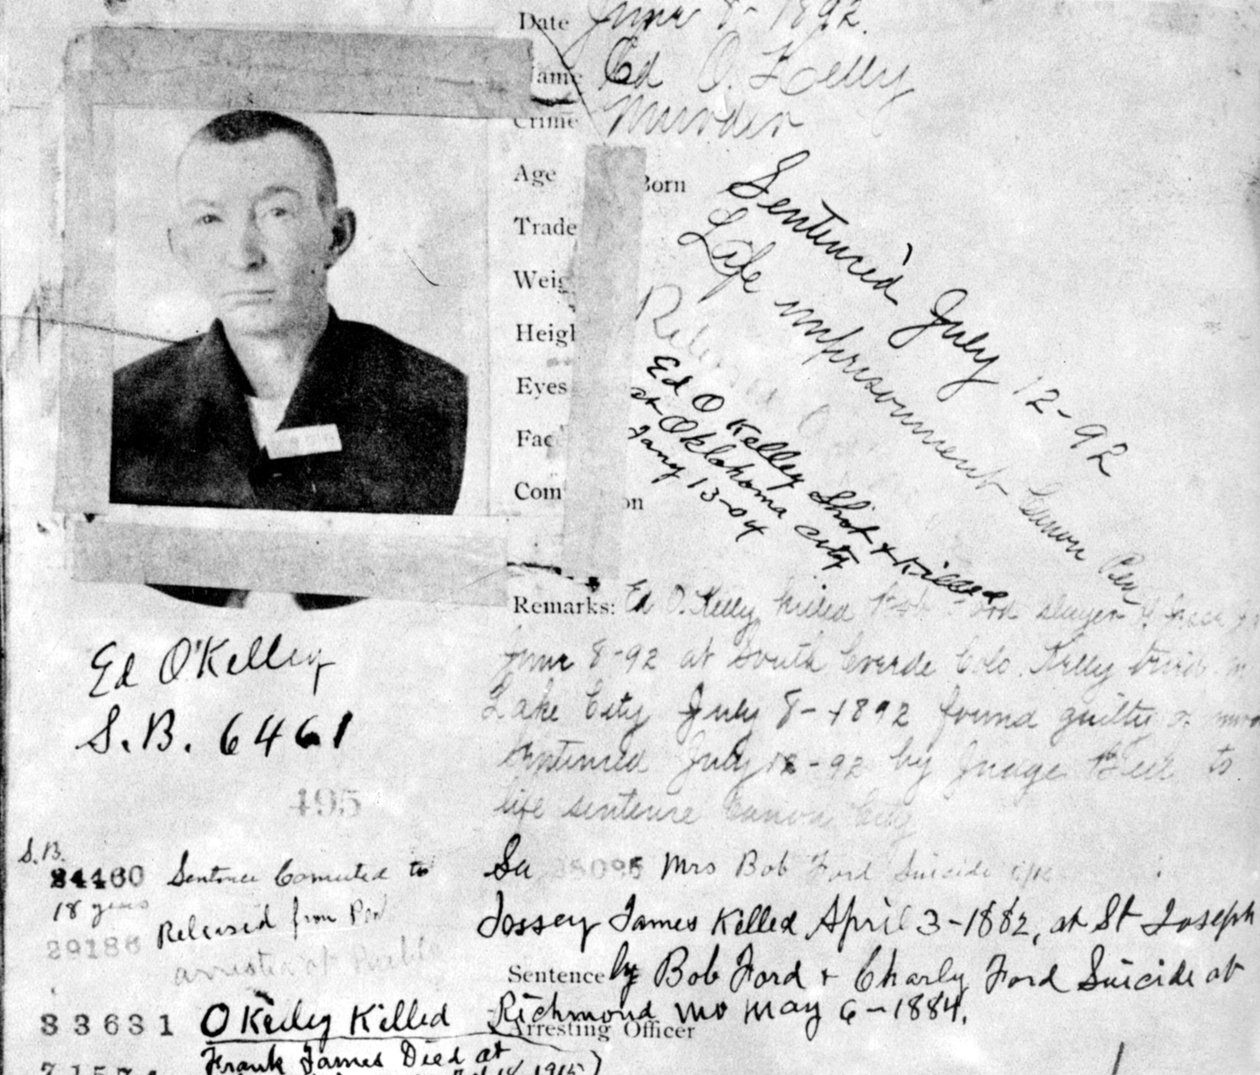 Date June 8-1892.
Name Ed O. Kelly
Crime Murder
Age Born
Trade
Weig
Heigh
Eyes
Fac
Com on
Sentenced July 12-92
Life imprisonment Canon Pen
Ed O Kelley Shot & Killed
at Oklahoma City
Jany 13-04
Remarks: Ed O. Kelly killed Bob Ford slayer of
June 8-92 at South Colo. Kelly tried
Lake City July 8-1892 found guilty
sentenced July 12-92 by Judge to
life sentence Canon City
Ed O'Kelley
S.B. 6461
495
S.B.
24460 Sentence Comuted to
18 years
Released from Pen
29186
arrested at Pueblo
33631 OKelley Killed
Frank James Died at
1915
Mrs Bob Ford Suicide
Jessey James Killed April 3-1882, at St Joseph
Sentence by Bob Ford & Charly Ford Suicide at
Richmond Mo May 6-1884.
Arresting Officer